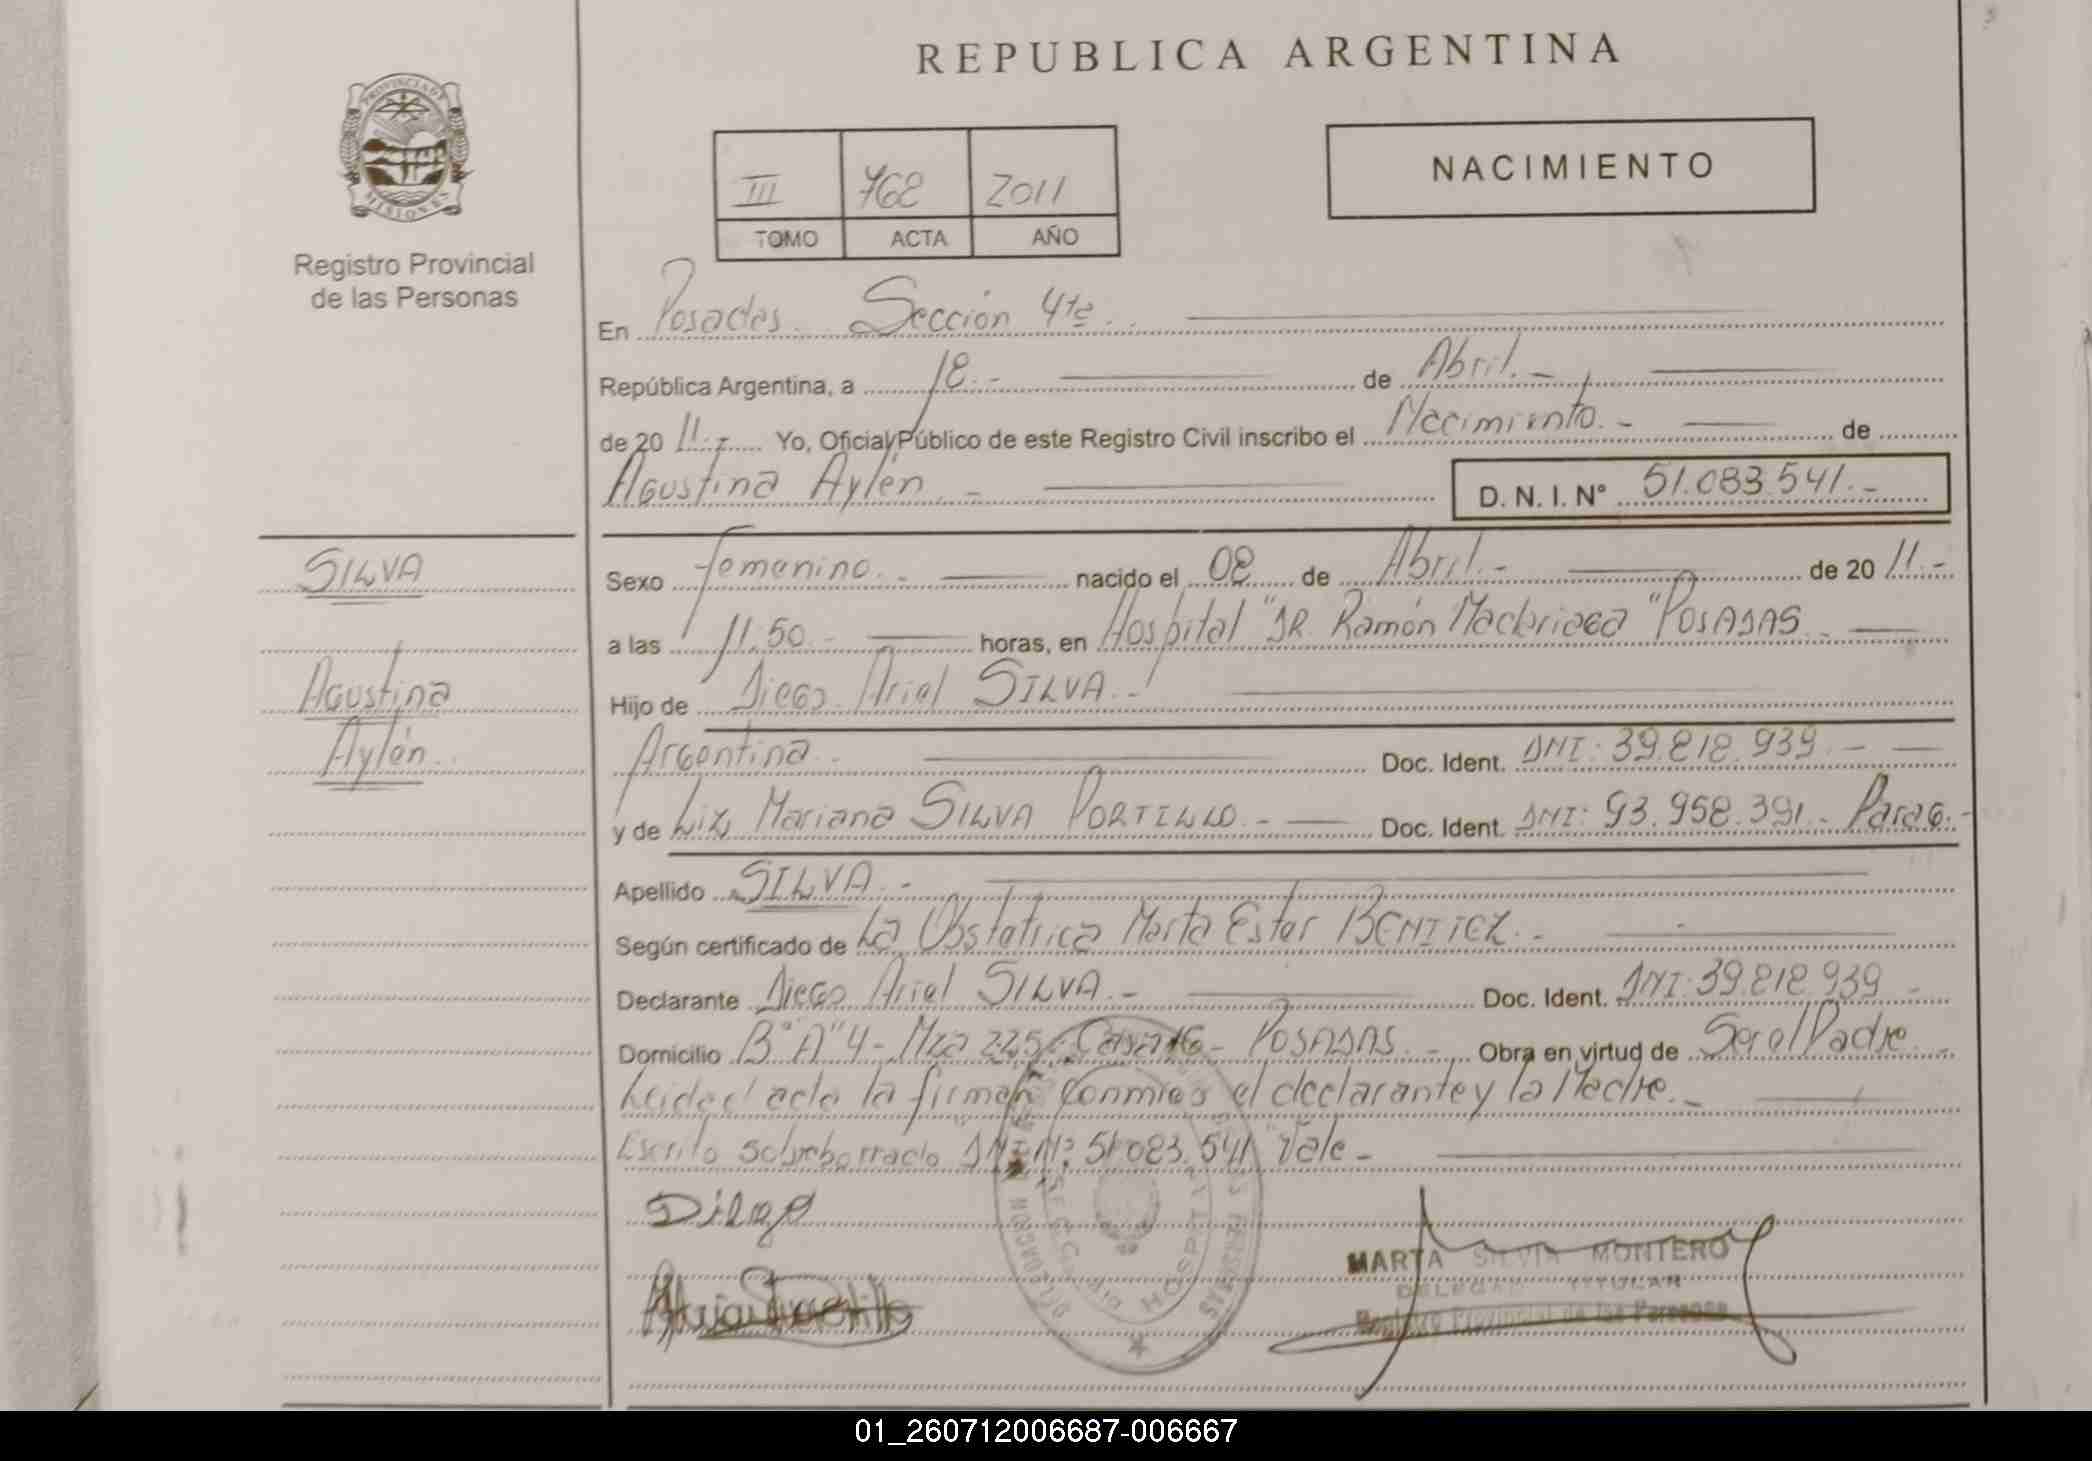 REPUBLICA ARGENTINA
PROVINCIA DE
MISIONES
Registro Provincial
de las Personas
III 762 2011
TOMO ACTA AÑO
NACIMIENTO
En Posadas. Sección 4ta.
República Argentina, a 18.- de Abril.-
de 20 11.- Yo, Oficial Público de este Registro Civil inscribo el Nacimiento.- de
Agustina Aylén.- D. N. I. N° 51.083.541.-
SILVA
Agustina
Aylén.
Sexo Femenino.- nacido el 08 de Abril.- de 20 11.-
a las 11:50.- horas, en Hospital "DR. Ramón Madariaga" POSADAS.
Hijo de Diego Ariel SILVA.-
Argentina.- Doc. Ident. DNI: 39.818.939.-
y de Liz Mariana SILVA PORTILLO.- Doc. Ident. DNI: 93.958.391.- Parag.-
Apellido SILVA.-
Según certificado de La Obstetrica Marta Ester BENITEZ.-
Declarante Diego Ariel SILVA.- Doc. Ident. DNI: 39.818.939.-
Domicilio B° "A" 4 - Mza 225 - Casa 16 - POSADAS.- Obra en virtud de Ser el Padre.-
Leida el acta la firman conmigo el declarante y la Madre.-
Escrito sobreborrado DNI N°: 51.083.541 Vale -
Diego
HOSPITAL
MARTA SILVIA MONTERO
DELEGADA TITULAR
Registro Provincial de las Personas
01_260712006687-006667